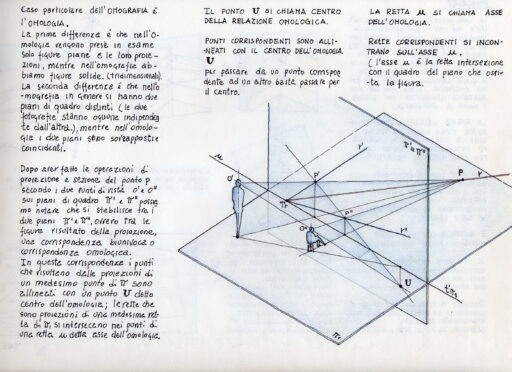 Caso particolare dell'OMOGRAFIA é
l'OMOLOGIA.
La prima differenza é che nell'O-
mologia vengono prese in esame
solo figure piane e le loro proie-
zioni, mentre nell'omografia ab-
biamo figure solide. (tridimensionali).
La seconda differenza é che nello
-mografia in genere si hanno due
piani di quadro distinti (le due
fotografie stanno ognuna indipenden
te dall'altra), mentre nell'omolo-
gia i due piani sono sovrapposti e
coincidenti.
Dopo aver fatto le operazioni di
proiezione e sezione del punto P
secondo i due punti di vista O' e O"
sui piani di quadro π' e π" possia-
mo notare che si stabilisce tra i
due piani π' e π", ovvero tra le
figure risultato della proiezione,
una corrispondenza biunivoca o
corrispondenza omologica.
In questa corrispondenza i punti
che risultano dalle proiezioni di
un medesimo punto di π sono
allineati con un punto U detto
centro dell'omologia; le rette che
sono proiezioni di una medesima ret
ta di π, si intersecano nei punti di
una retta u detta asse dell'omologia.
IL PUNTO U SI CHIAMA CENTRO
DELLA RELAZIONE OMOLOGICA.
PUNTI CORRISPONDENTI SONO ALLI-
NEATI CON IL CENTRO DELL'OMOLOGIA
U
per passare da un punto corrispon-
dente ad un altro basta passare per
il centro.
LA RETTA u SI CHIAMA ASSE
DELL'OMOLOGIA.
RETTE CORRISPONDENTI SI INCON-
TRANO SULL'ASSE u.
(l'asse u é la retta intersezione
con il quadro del piano che ospi-
ta la figura.
u
O'
P'
r'
π' ≡ π"
P
r
P"
O"
r"
U
π₁